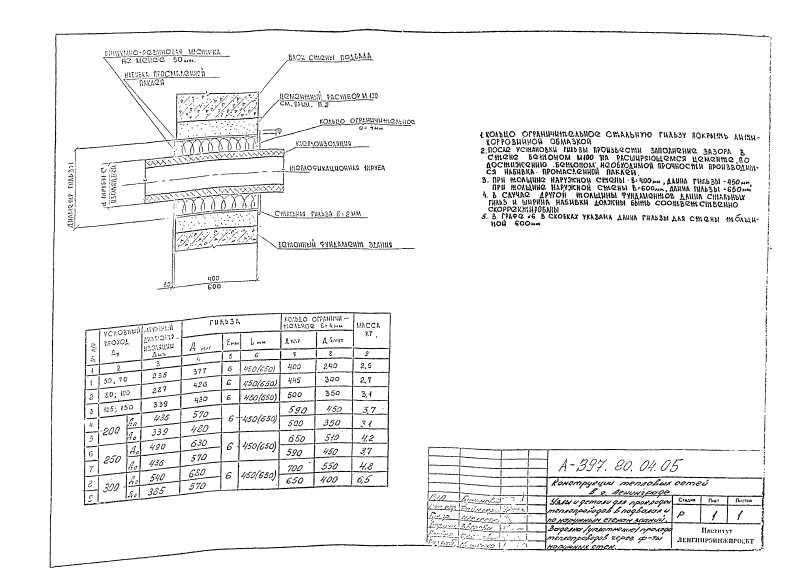 БИТУМНО-РЕЗИНОВАЯ МАСТИКА
НЕ МЕНЕЕ 50мм.
НАБИВКА ПРОСМАЛЕННОЙ
ПАКЛЕЙ
БЛОК СТЕНЫ ПОДВАЛА
ЦЕМЕНТНЫЙ РАСТВОР М 100
СМ. ПРИМ. П.2
КОЛЬЦО ОГРАНИЧИТЕЛЬНОЕ
δ=4мм
ГИДРОИЗОЛЯЦИЯ
ТЕПЛОФИКАЦИОННАЯ ТРУБА
СТАЛЬНАЯ ГИЛЬЗА
БЕТОННЫЙ ФУНДАМЕНТ ЗДАНИЯ
ДИАМЕТР ГИЛЬЗЫ
ИЗОЛЯЦИЕЙ
400
600
1. КОЛЬЦО ОГРАНИЧИТЕЛЬНОЕ СТАЛЬНУЮ ГИЛЬЗУ ПОКРЫТЬ АНТИ-
КОРРОЗИЙНОЙ ОБМАЗКОЙ
2. ПОСЛЕ УСТАНОВКИ ГИЛЬЗЫ ПРОИЗВЕСТИ ЗАПОЛНЕНИЕ ЗАЗОРА В
СТЕНЕ БЕТОНОМ М100 НА РАСШИРЯЮЩЕМСЯ ЦЕМЕНТЕ, ПО
ДОСТИЖЕНИЮ БЕТОНОМ НЕОБХОДИМОЙ ПРОЧНОСТИ ПРОИЗВОДИТ-
СЯ НАБИВКА ПРОМАСЛЕННОЙ ПАКЛЕЙ.
3. ПРИ ТОЛЩИНЕ НАРУЖНОЙ СТЕНЫ δ=400мм, ДЛИНА ГИЛЬЗЫ -450мм,
ПРИ ТОЛЩИНЕ НАРУЖНОЙ СТЕНЫ δ=600мм, ДЛИНА ГИЛЬЗЫ -650мм
4. В СЛУЧАЕ ДРУГОЙ ТОЛЩИНЫ ФУНДАМЕНТОВ ДЛИНА СТАЛЬНЫХ
ГИЛЬЗ И ШИРИНА НАБИВКИ ДОЛЖНЫ БЫТЬ СООТВЕТСТВЕННО
СКОРРЕКТИРОВАНЫ
5. В ГРАФЕ «6 В СКОБКАХ УКАЗАНА ДЛИНА ГИЛЬЗЫ ДЛЯ СТЕНЫ ТОЛЩИ-
НОЙ 600мм
№ п/п УСЛОВНЫЙ ПРОХОД Ду НАРУЖНЫЙ ДИАМЕТР ИЗОЛЯЦИИ Диз ГИЛЬЗА КОЛЬЦО ОГРАНИЧИ-ТЕЛЬНОЕ δ=4мм МАССА КГ
δмм L мм Д нар
1 2 3 4 5 6 7 8 9
1 50, 70 235 377 6 450(650) 400 240 2,5
2 80; 100 287 426 6 450(650) 445 300 2,7
3 125; 150 339 480 6 450(650) 500 350 3,1
4 200 Дп 436 570 6 450(650) 590 450 3,7
5 До 339 480 500 350 3,1
6 250 Дп 490 630 6 450(650) 650 510 4,2
7 До 436 570 590 450 3,7
8 300 Дп 540 680 6 450(650) 700 550 4,8
9 До 385 570 650 400 6,5
А-397. 80. 04.05
Конструкции тепловых сетей
в г. Ленинграде
Узлы и детали для прокладки
теплопроводов в подвалах и
по наружным стенам зданий.
Стадия Лист Листов
Р 1 1
Заделка /уплотнение/ прохода
теплопроводов через ф-ты
наружных стен.
Институт
ЛЕНГИПРОИНЖПРОЕКТ